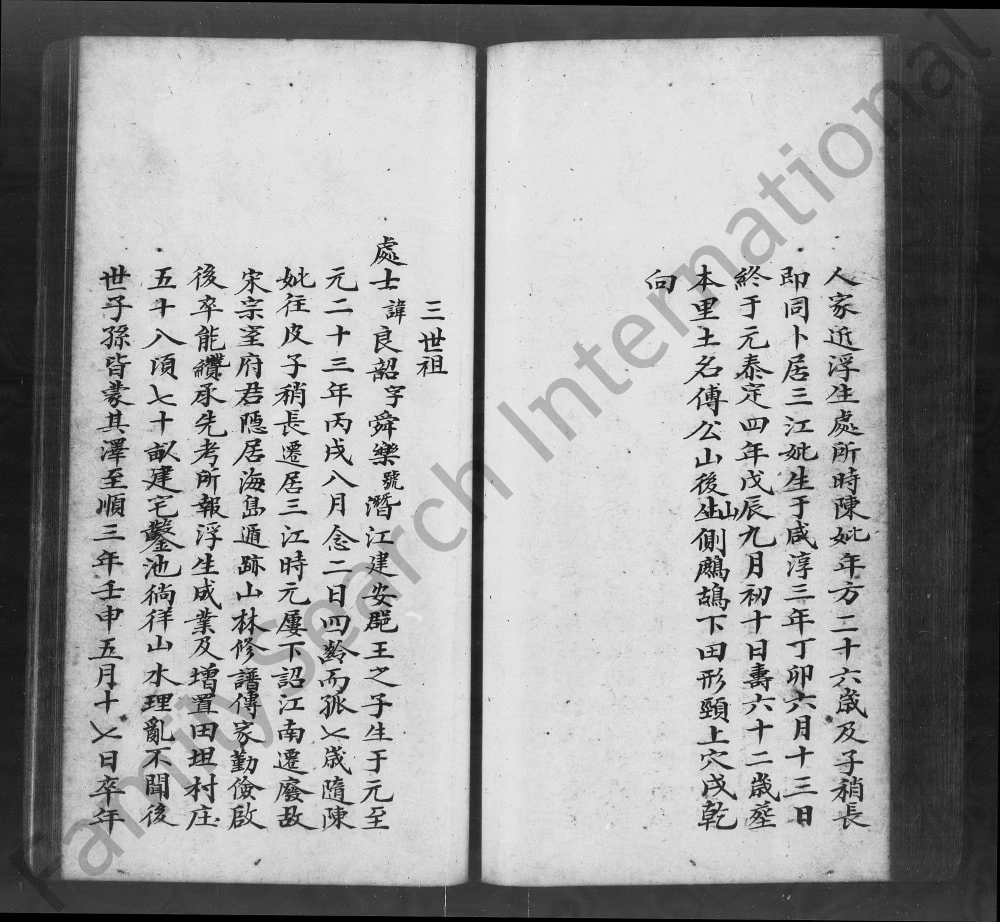 人家近浮生處所時陳妣年方二十六歲及子稍長
即同卜居三江妣生于咸淳三年丁卯六月十三日
終于元泰定四年戊辰九月初十日壽六十二歲塟
本里土名傅公山後山坐側鷓鴣下田形頸上穴戌乾
向
三世祖
處士諱良韶字舜樂號潛江建安郡王之子生于元至
元二十三年丙戌八月念二日四齡而孤七歲隨陳
妣往皮子稍長遷居三江時元屢下詔江南遷廢故
宋宗室府君隱居海島遁跡山林修譜傳家勤儉啟
後卒能纘承先考所報浮生成業及增置田坦村庄
五十八頃七十畝建宅鑿池徜徉山水理亂不聞後
世子孫皆蒙其澤至順三年壬申五月十七日卒年
FamilySearch International